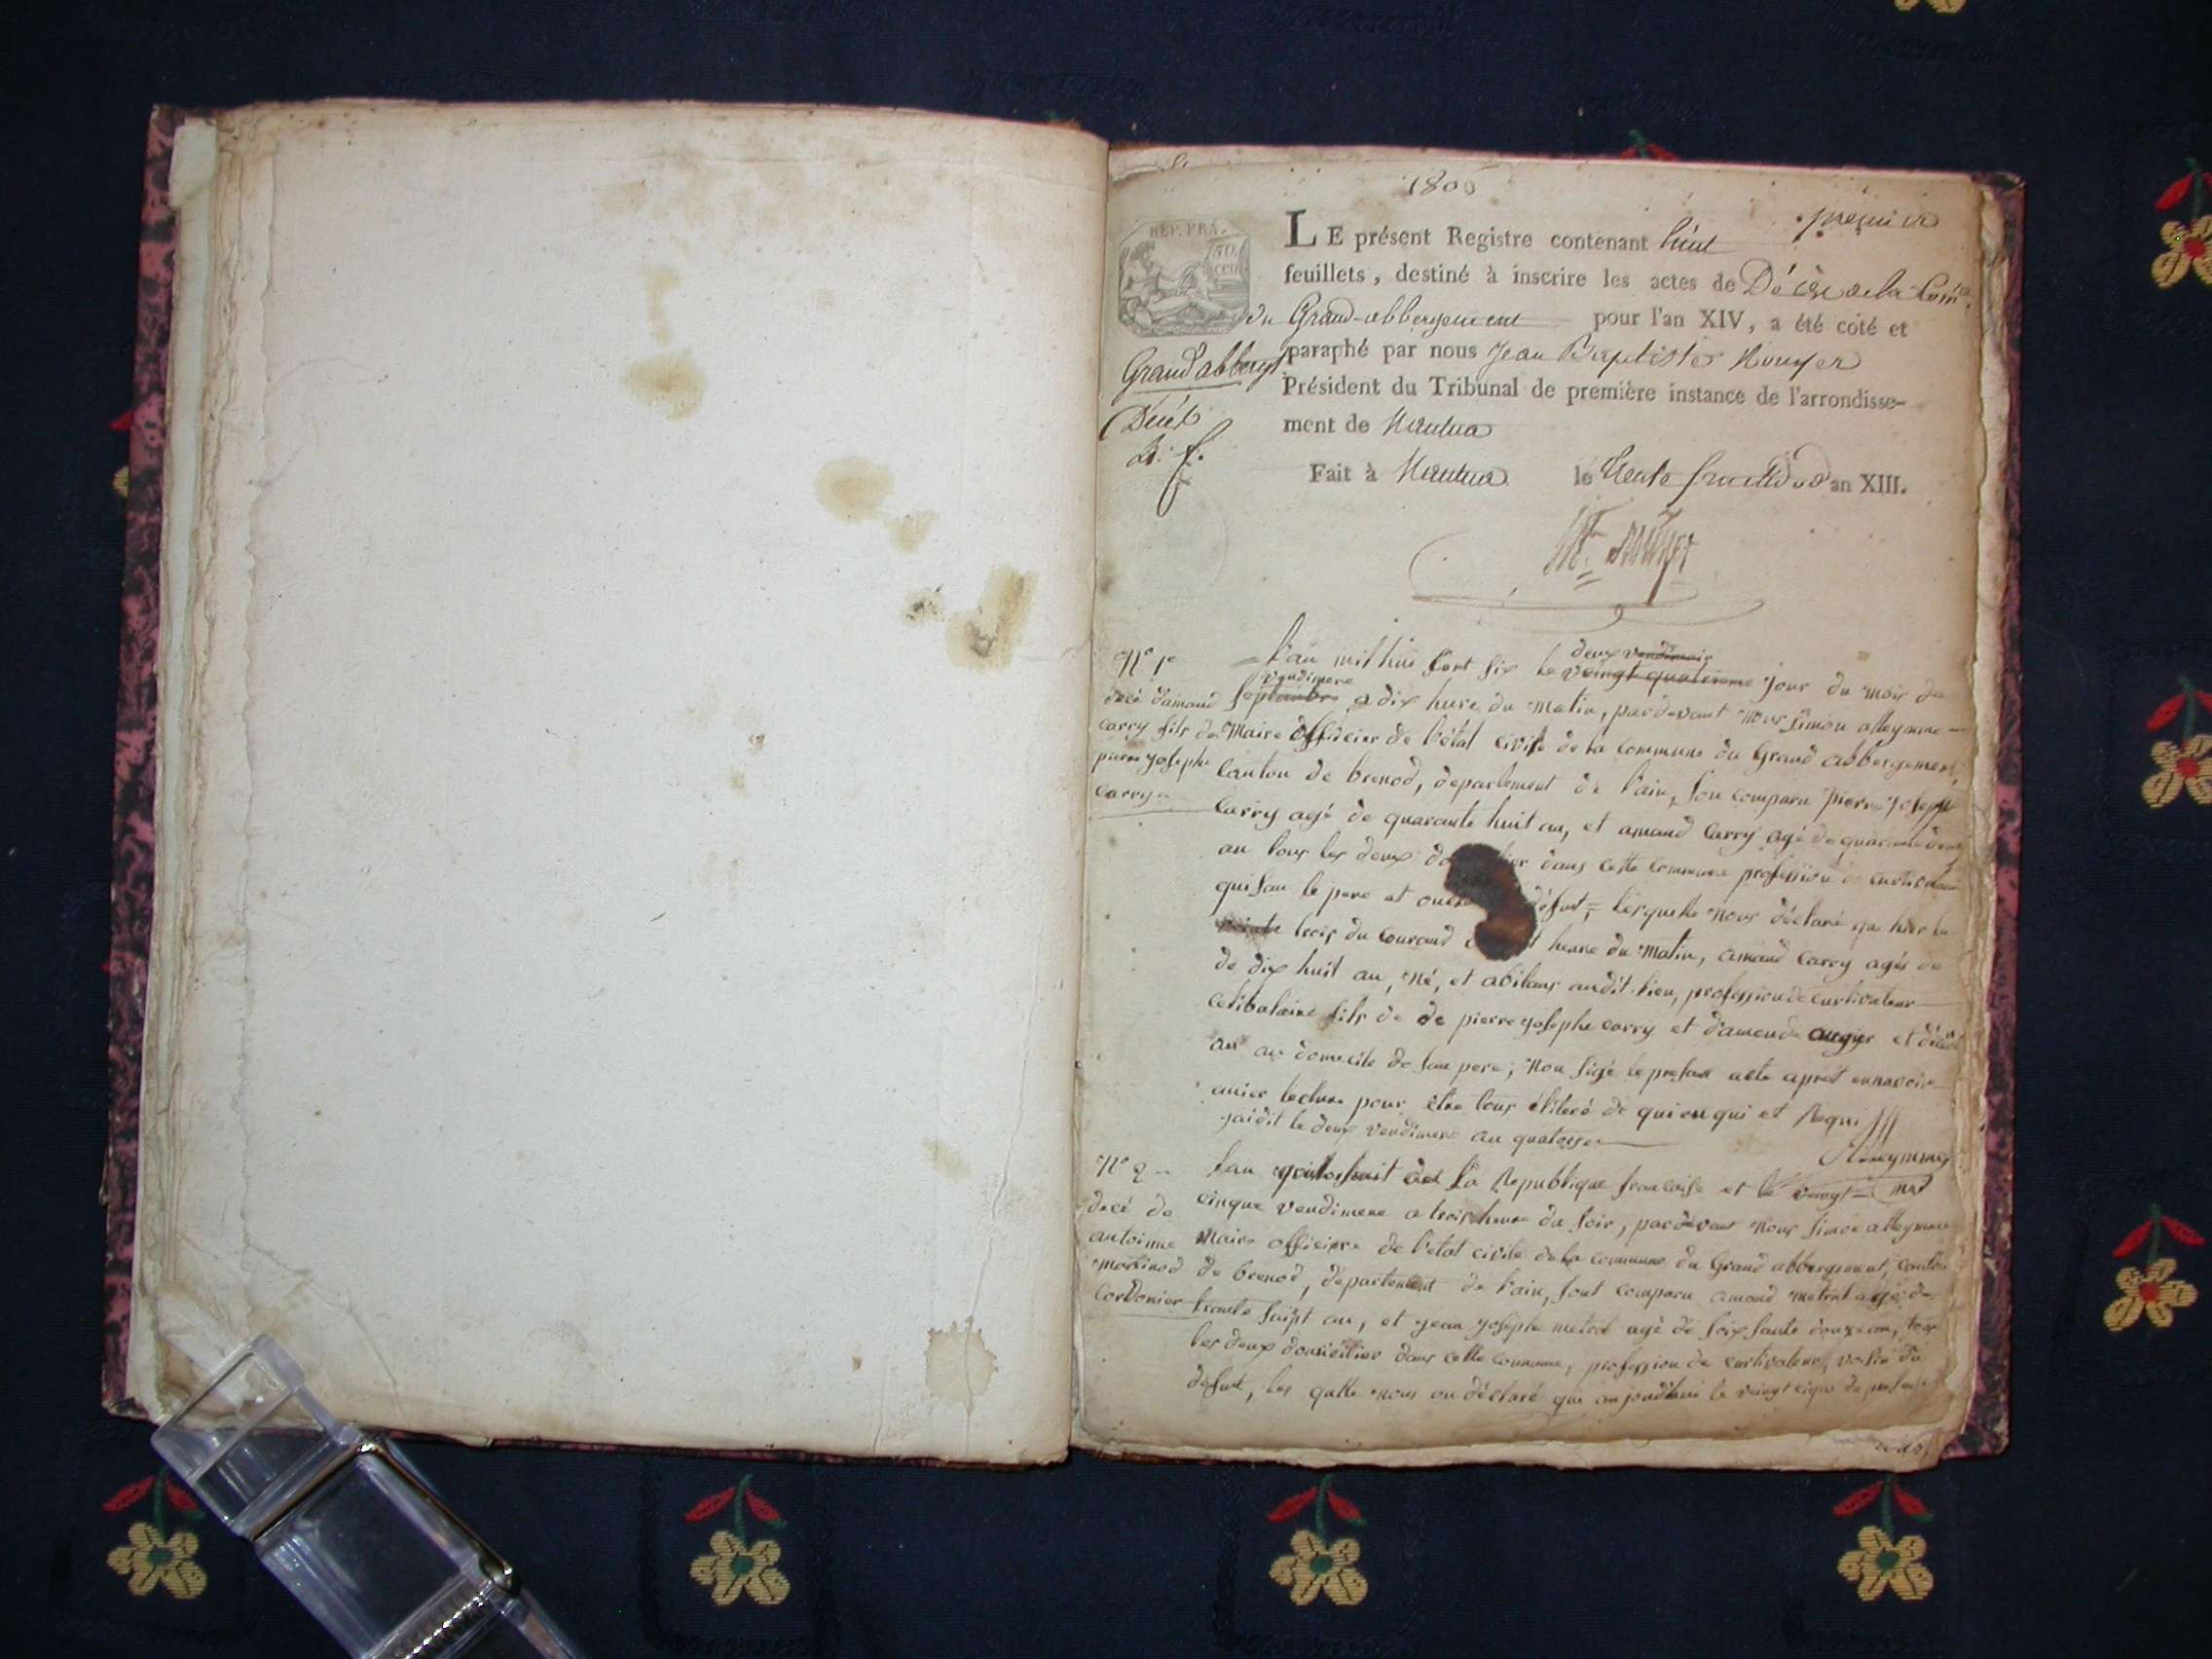 1806
REP. FRA.
50 cent
premier
LE présent Registre contenant huit
feuillets, destiné à inscrire les actes de Décès de la Com.
du Grand-abbergement pour l'an XIV, a été coté et
paraphé par nous Jean Baptiste Rouyer
Président du Tribunal de première instance de l'arrondisse-
ment de Nantua
Fait à Nantua le trente fructidor an XIII.
Grand abbergt
Décès
N° 1er
décé d'amand
carry fils de
pierre josephe
carry
l'an mil huis sent six le deux vendimair veingt quatrieme jour du mois de
vendimere septambre a dix hure du matin, pardevant nous simon alleymme
Maire officier de l'état civile de la commune du Grand abbergement
canton de brenod, departement de l'ain, son comparu pierre joseph
Carry agé de quarante huit an, et amand Carry agé de quarante deux
an tous les deux dans cette commune profession de curtivateur
qui san le pere et défunt, lesquelle nous déclaré que hier le
trois du courand heure du matin, amand carry agés de
de dix huit an, né, et abitans audit lieu, profession de curtivateur
celibataire fils de de pierre josephe carry et d'amende et décédé
an au domicile de son pere; nou sigé le presant acte aprest
lecture pour être tous délitéré de qui en qui et Requi
jaidit le deux vendimere an quatorse
Alleymme
Mai
N° 2
decé de
antoinne
mottinod
cordonier
l'an de La Republique francaise et le veingt
cinque vendimere a trois heure du soir, pardevant nous simon alleymme
Maire officiere de l'etat civile de la commune du Grand abbergement, canton
de brenod, departement de l'ain, sont comparu amand metrat agé de
trante saipt an, et jean josephe metrat agé de soixsante douze an, tous
les deux domicilier dans cette commune, profession de curtivateur, voisin du
defunt, les quelle nous on déclaré que aujourd'hui le veingt cique